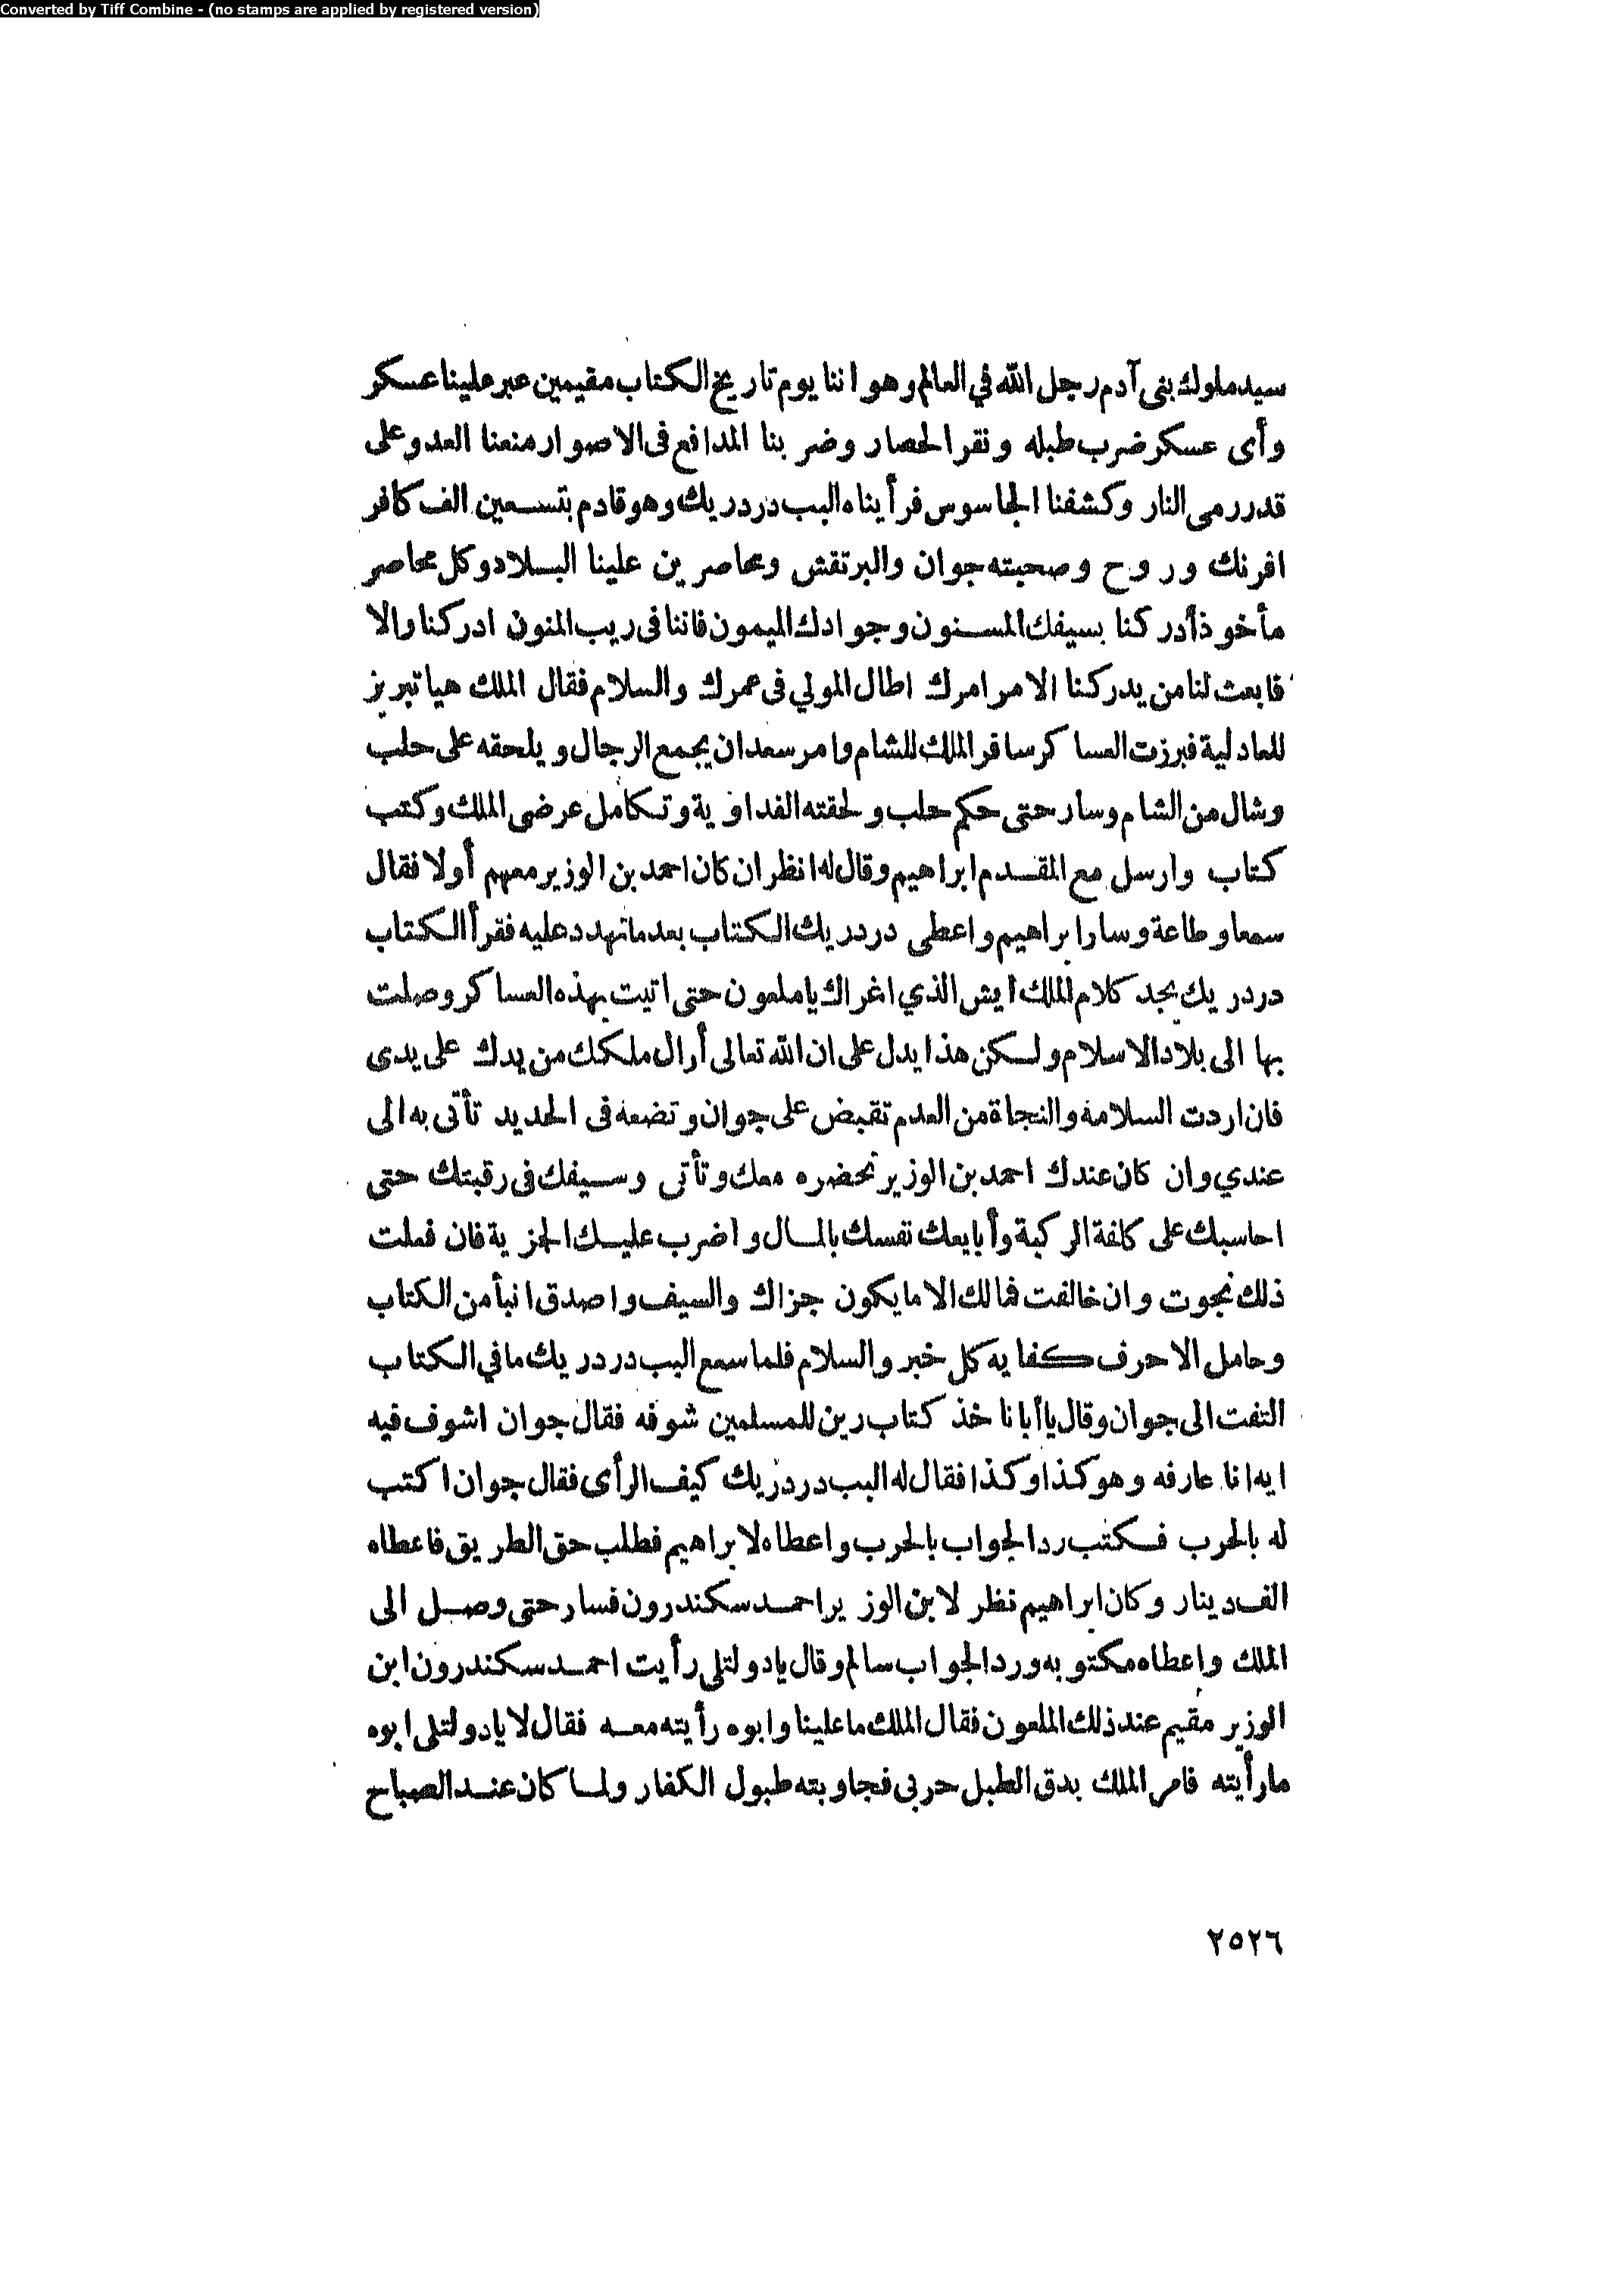 Converted by Tiff Combine - (no stamps are applied by registered version)
سيد ملوك بنى آدم رجل الله في العالم وهو اننا يوم تاريخ الكتاب مقيمين عبر علينا عسكر
وأى عسكر ضرب طبله ونقر الحصار وضربنا المدافع فى الاصوار منعنا العدو على
قدر رمى النار وكشفنا الجاسوس فرأيناه البب دردريك وهو قادم بتسعين الف كافر
افرنك وروح وصحبته جوان والبرتقش ومحاصرين علينا البلاد وكل محاصر
مأخوذ أدركنا بسيفك المسنون وجوادك الميمون فاننا فى ريب المنون ادركنا والا
فابعث لنا من يدركنا الامر امرك اطال المولي فى عمرك والسلام فقال الملك هيا تبريز
للعادلية فبرزت العساكر سافر الملك للشام وامر سعد ان يجمع الرجال ويلحقه على حلب
وشال من الشام وسار حتى حكم حلب ولحقته الفداوية وتكامل عرضى الملك وكتب
كتاب وارسل مع المقدم ابراهيم وقال له انظر ان كان احمد بن الوزير معهم أولا فقال
سمعا وطاعة وسار ابراهيم واعطى دردريك الكتاب بعد ماتهدد عليه فقرأ الكتاب
دردريك يجد كلام الملك ايش الذي اغراك يا ملعون حتى اتيت بهذه العساكر وصلت
بها الى بلاد الاسلام ولكن هذا يدل على ان الله تعالى أرال ملكك من يدك على يدى
فان اردت السلامة والنجاة من العدم تقبض على جوان وتضعه فى الحديد تأتى به الى
عندي وان كان عندك احمد بن الوزير تحضره معك وتأتى وسيفك فى رقبتك حتى
احاسبك على كلفة الركبة وأبايعك نفسك بالمال واضرب عليك الجزية فان فعلت
ذلك نجوت وان خالفت فمالك الا ما يكون جزاك والسيف واصدق انبأ من الكتاب
وحامل الاحرف كفايه كل خبر والسلام فلما سمع البب دردريك ما في الكتاب
التفت الى جوان وقال يا أبانا خذ كتاب رين للمسلمين شوفه فقال جوان اشوف فيه
ايه انا عارفه وهو كذا وكذا فقال له البب دردريك كيف الرأى فقال جوان اكتب
له بالحرب فكتب رد الجواب بالحرب واعطاه لابراهيم فطلب حق الطريق فاعطاه
الف دينار وكان ابراهيم نظر لابن الوزير احمد سكندرون فسار حتى وصل الى
الملك واعطاه مكتوبه ورد الجواب سالم وقال يادولتلى رأيت احمد سكندرون ابن
الوزير مقيم عند ذلك الملعون فقال الملك ما علينا وابوه رأيته معه فقال لا يادولتلى ابوه
مارأيته فامر الملك بدق الطبل حربى فجاوبته طبول الكفار ولما كان عند الصباح
٢٥٢٦